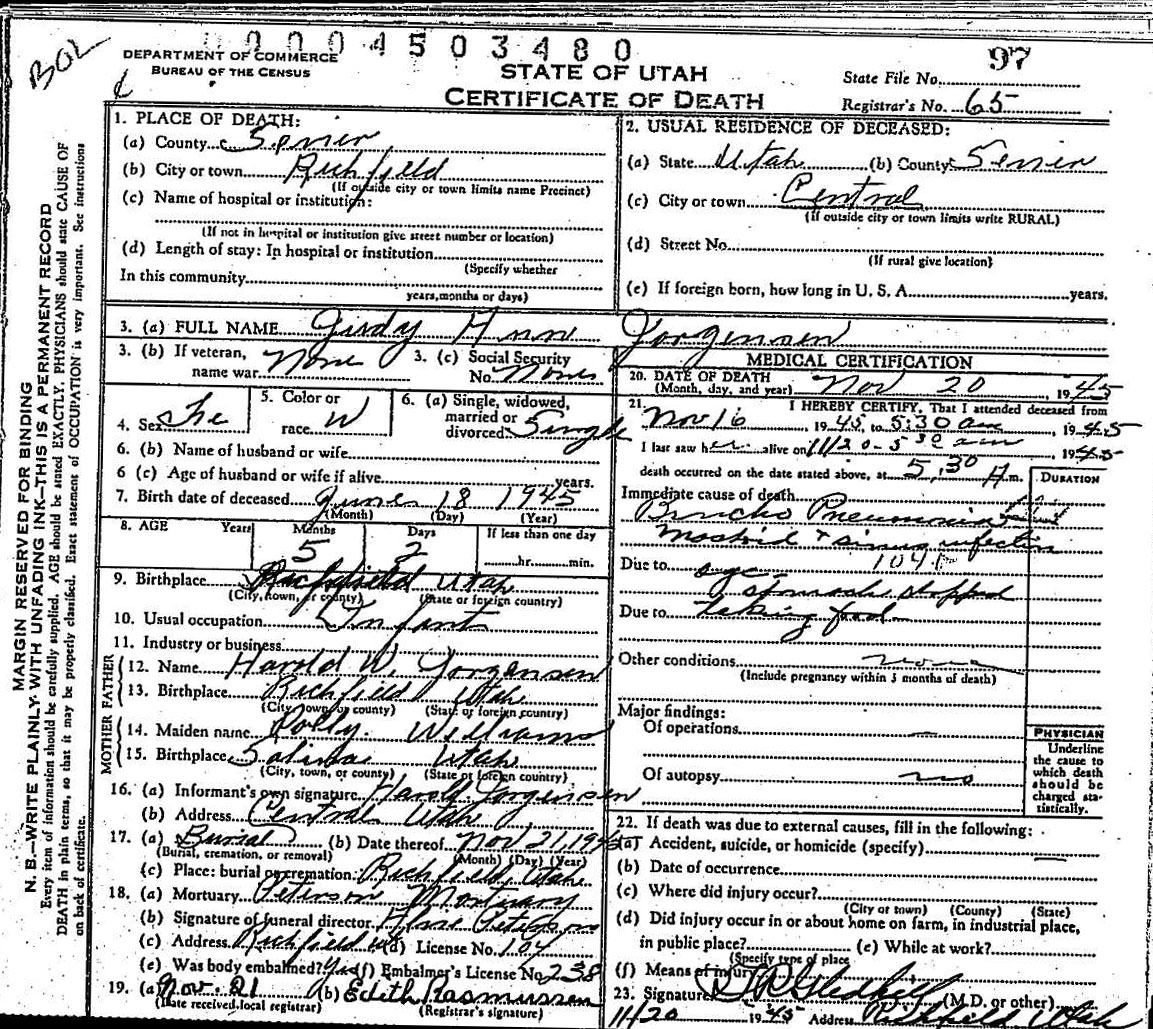 BOL
00004503480
97
DEPARTMENT OF COMMERCE
BUREAU OF THE CENSUS
STATE OF UTAH
CERTIFICATE OF DEATH
State File No.
Registrar's No. 65
MARGIN RESERVED FOR BINDING
N. B.—WRITE PLAINLY. WITH UNFADING INK—THIS IS A PERMANENT RECORD
Every item of information should be carefully supplied. AGE should be stated EXACTLY. PHYSICIANS should state CAUSE OF
DEATH in plain terms, so that it may be properly classified. Exact statement of OCCUPATION is very important. See instructions
on back of certificate.
1. PLACE OF DEATH:
(a) County Sevier
(b) City or town Richfield
(If outside city or town limits name Precinct)
(c) Name of hospital or institution:
(If not in hospital or institution give street number or location)
(d) Length of stay: In hospital or institution
(Specify whether
In this community
years, months or days)
2. USUAL RESIDENCE OF DECEASED:
(a) State Utah (b) County Sevier
(c) City or town Central
(If outside city or town limits write RURAL)
(d) Street No.
(If rural give location)
(e) If foreign born, how long in U. S. A. years.
3. (a) FULL NAME Judy Ann Jorgensen
3. (b) If veteran, name war None 3. (c) Social Security No. None
4. Sex She 5. Color or race W 6. (a) Single, widowed, married or divorced Single
6. (b) Name of husband or wife
6 (c) Age of husband or wife if alive years.
7. Birth date of deceased June 18 1945
(Month) (Day) (Year)
8. AGE Years Months Days If less than one day
5 2 hr. min.
9. Birthplace Richfield Utah
(City, town, or county) (State or foreign country)
10. Usual occupation Infant
11. Industry or business
FATHER
12. Name Harold W. Jorgensen
13. Birthplace Richfield Utah
(City, town or county) (State or foreign country)
MOTHER
14. Maiden name Polly Williams
15. Birthplace Salina Utah
(City, town, or county) (State or foreign country)
16. (a) Informant's own signature Harold Jorgensen
(b) Address Central Utah
17. (a) Burial (b) Date thereof Nov 21, 1945
(Burial, cremation, or removal) (Month) (Day) (Year)
(c) Place: burial or cremation Richfield, Utah
18. (a) Mortuary Peterson Mortuary
(b) Signature of funeral director Peterson
(c) Address Richfield Ut (d) License No. 104
(e) Was body embalmed? Yes (f) Embalmer's License No. 238
19. (a) Nov. 21 (b) Edith Rasmussen
(Date received local registrar) (Registrar's signature)
MEDICAL CERTIFICATION
20. DATE OF DEATH
(Month, day, and year) Nov 20, 1945
21. I HEREBY CERTIFY, That I attended deceased from
Nov 16, 1945, to 5:30 am, 1945
I last saw her alive on 11/20 - 5 30 am 1945
death occurred on the date stated above, at 5:30 A. m.
DURATION
Immediate cause of death
Broncho Pneumonia
Mastoid + sinus infection
Due to 104 F
stomach stopped
Due to taking food
Other conditions none
(Include pregnancy within 3 months of death)
Major findings:
Of operations —
Of autopsy no
PHYSICIAN
Underline
the cause to
which death
should be
charged sta-
tistically.
22. If death was due to external causes, fill in the following:
(a) Accident, suicide, or homicide (specify)
(b) Date of occurrence
(c) Where did injury occur?
(City or town) (County) (State)
(d) Did injury occur in or about home on farm, in industrial place,
in public place? (e) While at work?
(Specify type of place
(f) Means of injury
23. Signature (M.D. or other)
11/20 1945 Address Richfield Utah